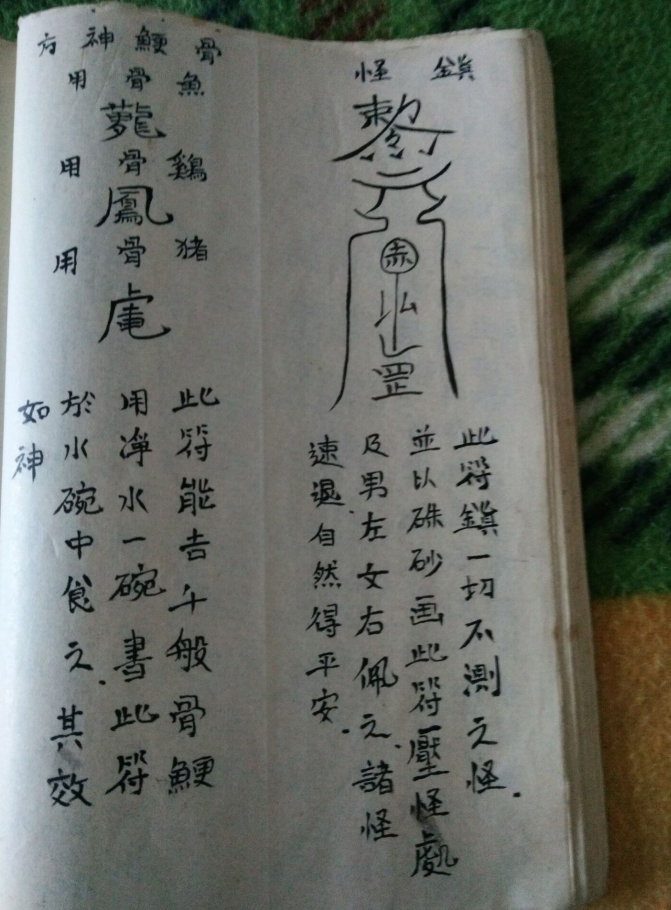 鎮怪
赤
罡
此符鎮一切不測之怪.
並以硃砂画此符壓怪處
及男左女右佩之.諸怪
速退.自然得平安.
骨鯁神方
魚骨用
鷄骨用
鳳
猪骨用
此符能去千般骨鯁
用淨水一碗書此符
於水碗中食之.其效
如神